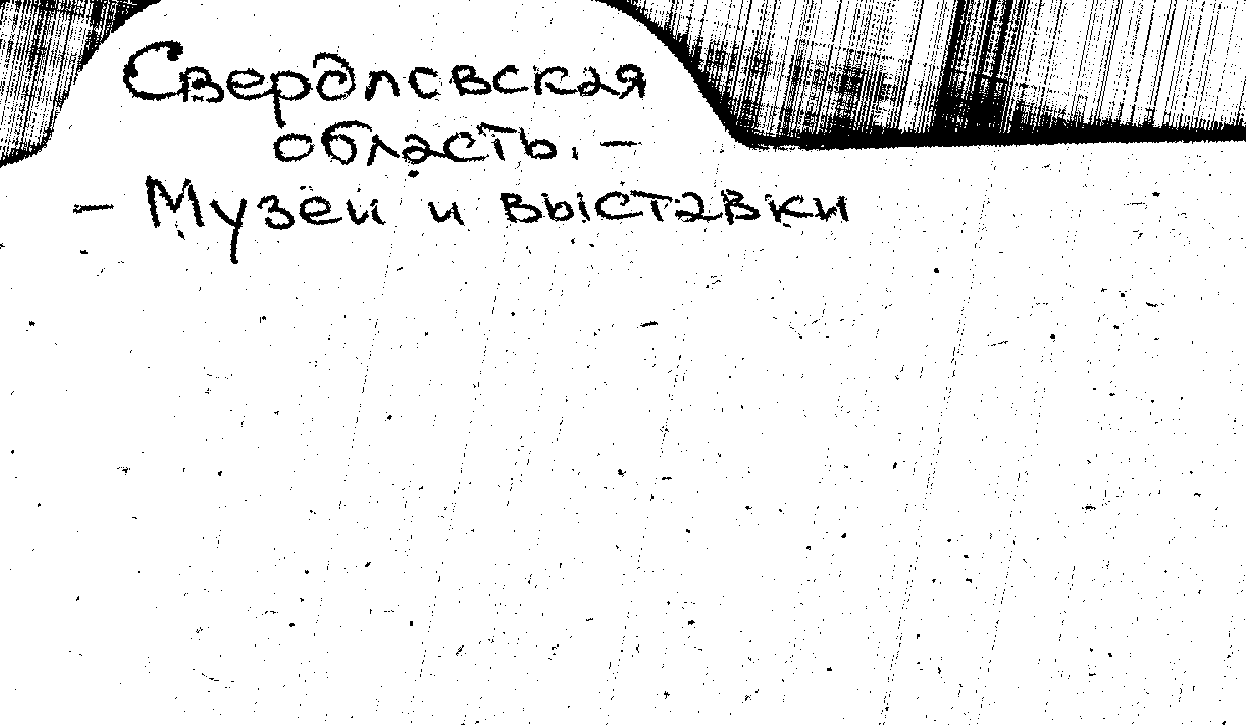 Свердловская
область. –
– Музеи и выставки